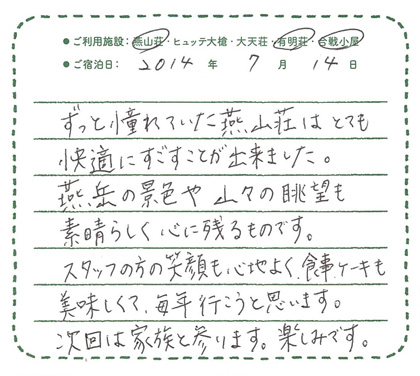 ●ご利用施設：燕山荘・ヒュッテ大槍・大天荘・有明荘・合戦小屋
●ご宿泊日： 2014 年 7 月 14 日
ずっと憧れていた燕山荘はとても
快適にすごすことが出来ました。
燕岳の景色や山々の眺望も
素晴らしく心に残るものです。
スタッフの方の笑顔も心地よく、食事ケーキも
美味しくて、毎年行こうと思います。
次回は家族と参ります。楽しみです。